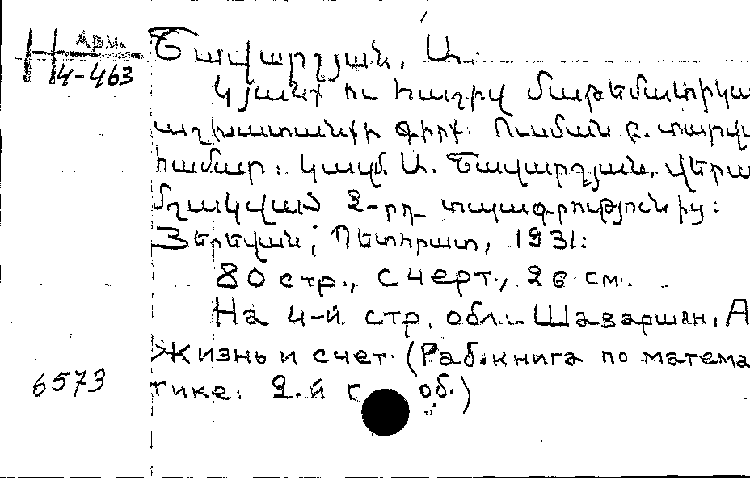 Арм.
Н 4-463
Շավարշյան, Ա.
Կյանք ու հաշիվ մաթեմատիկա
աշխատանքի գիրք: Ուսման 2. տարվ
համար: Կազմ. Ա. Շավարշյան, վերա
մշակված 2-րդ տպագրությունից:
Յերեվան, Պետհրատ, 1931:
80 стр., с черт., 26 см.
На 4-й стр. обл.: Шаваршян, А
Жизнь и счет (Раб. книга по матема
6573
тике. 2-й г об.)